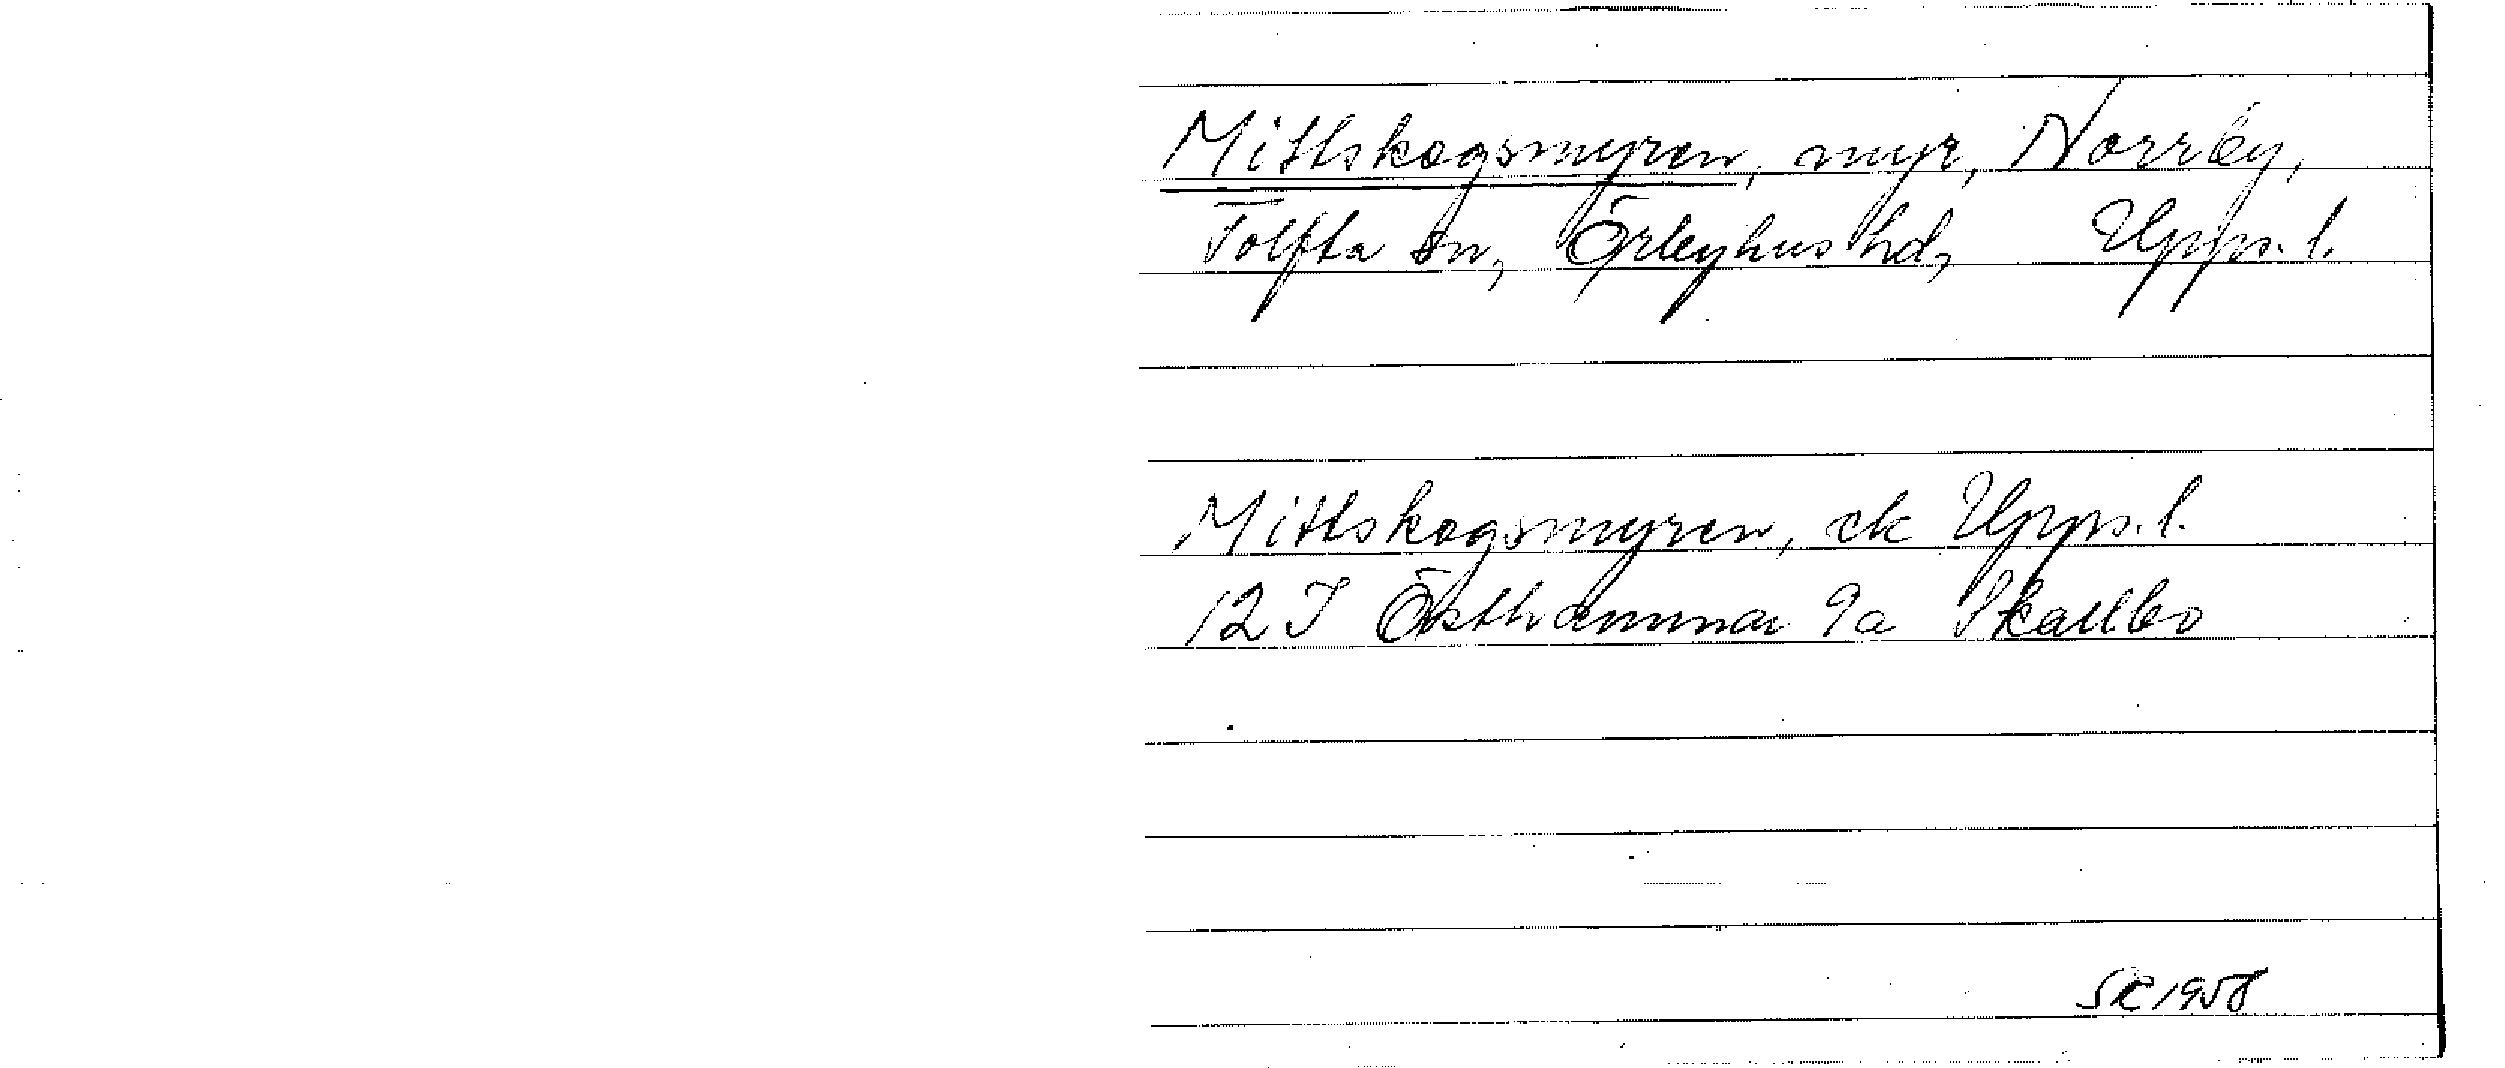 Mittskogsmyren, myr, Norrby,
Tolfta sn, Örbyhus hd, Upps. l.
Mittskogsmyren, ek Upps. l.
12 I Östhammar 9a Skallbo
SR 1958